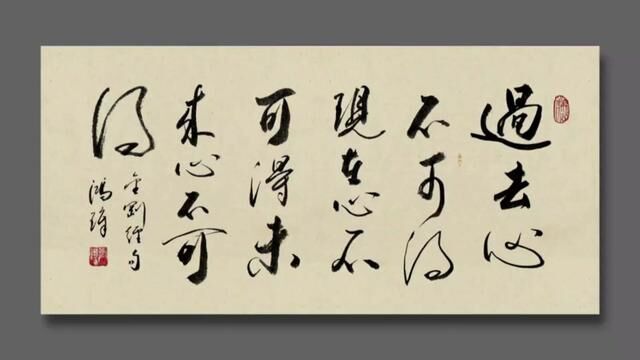 過去心
不可得
現在心不
可得未
来心不可
得
金剛經句
鴻璋